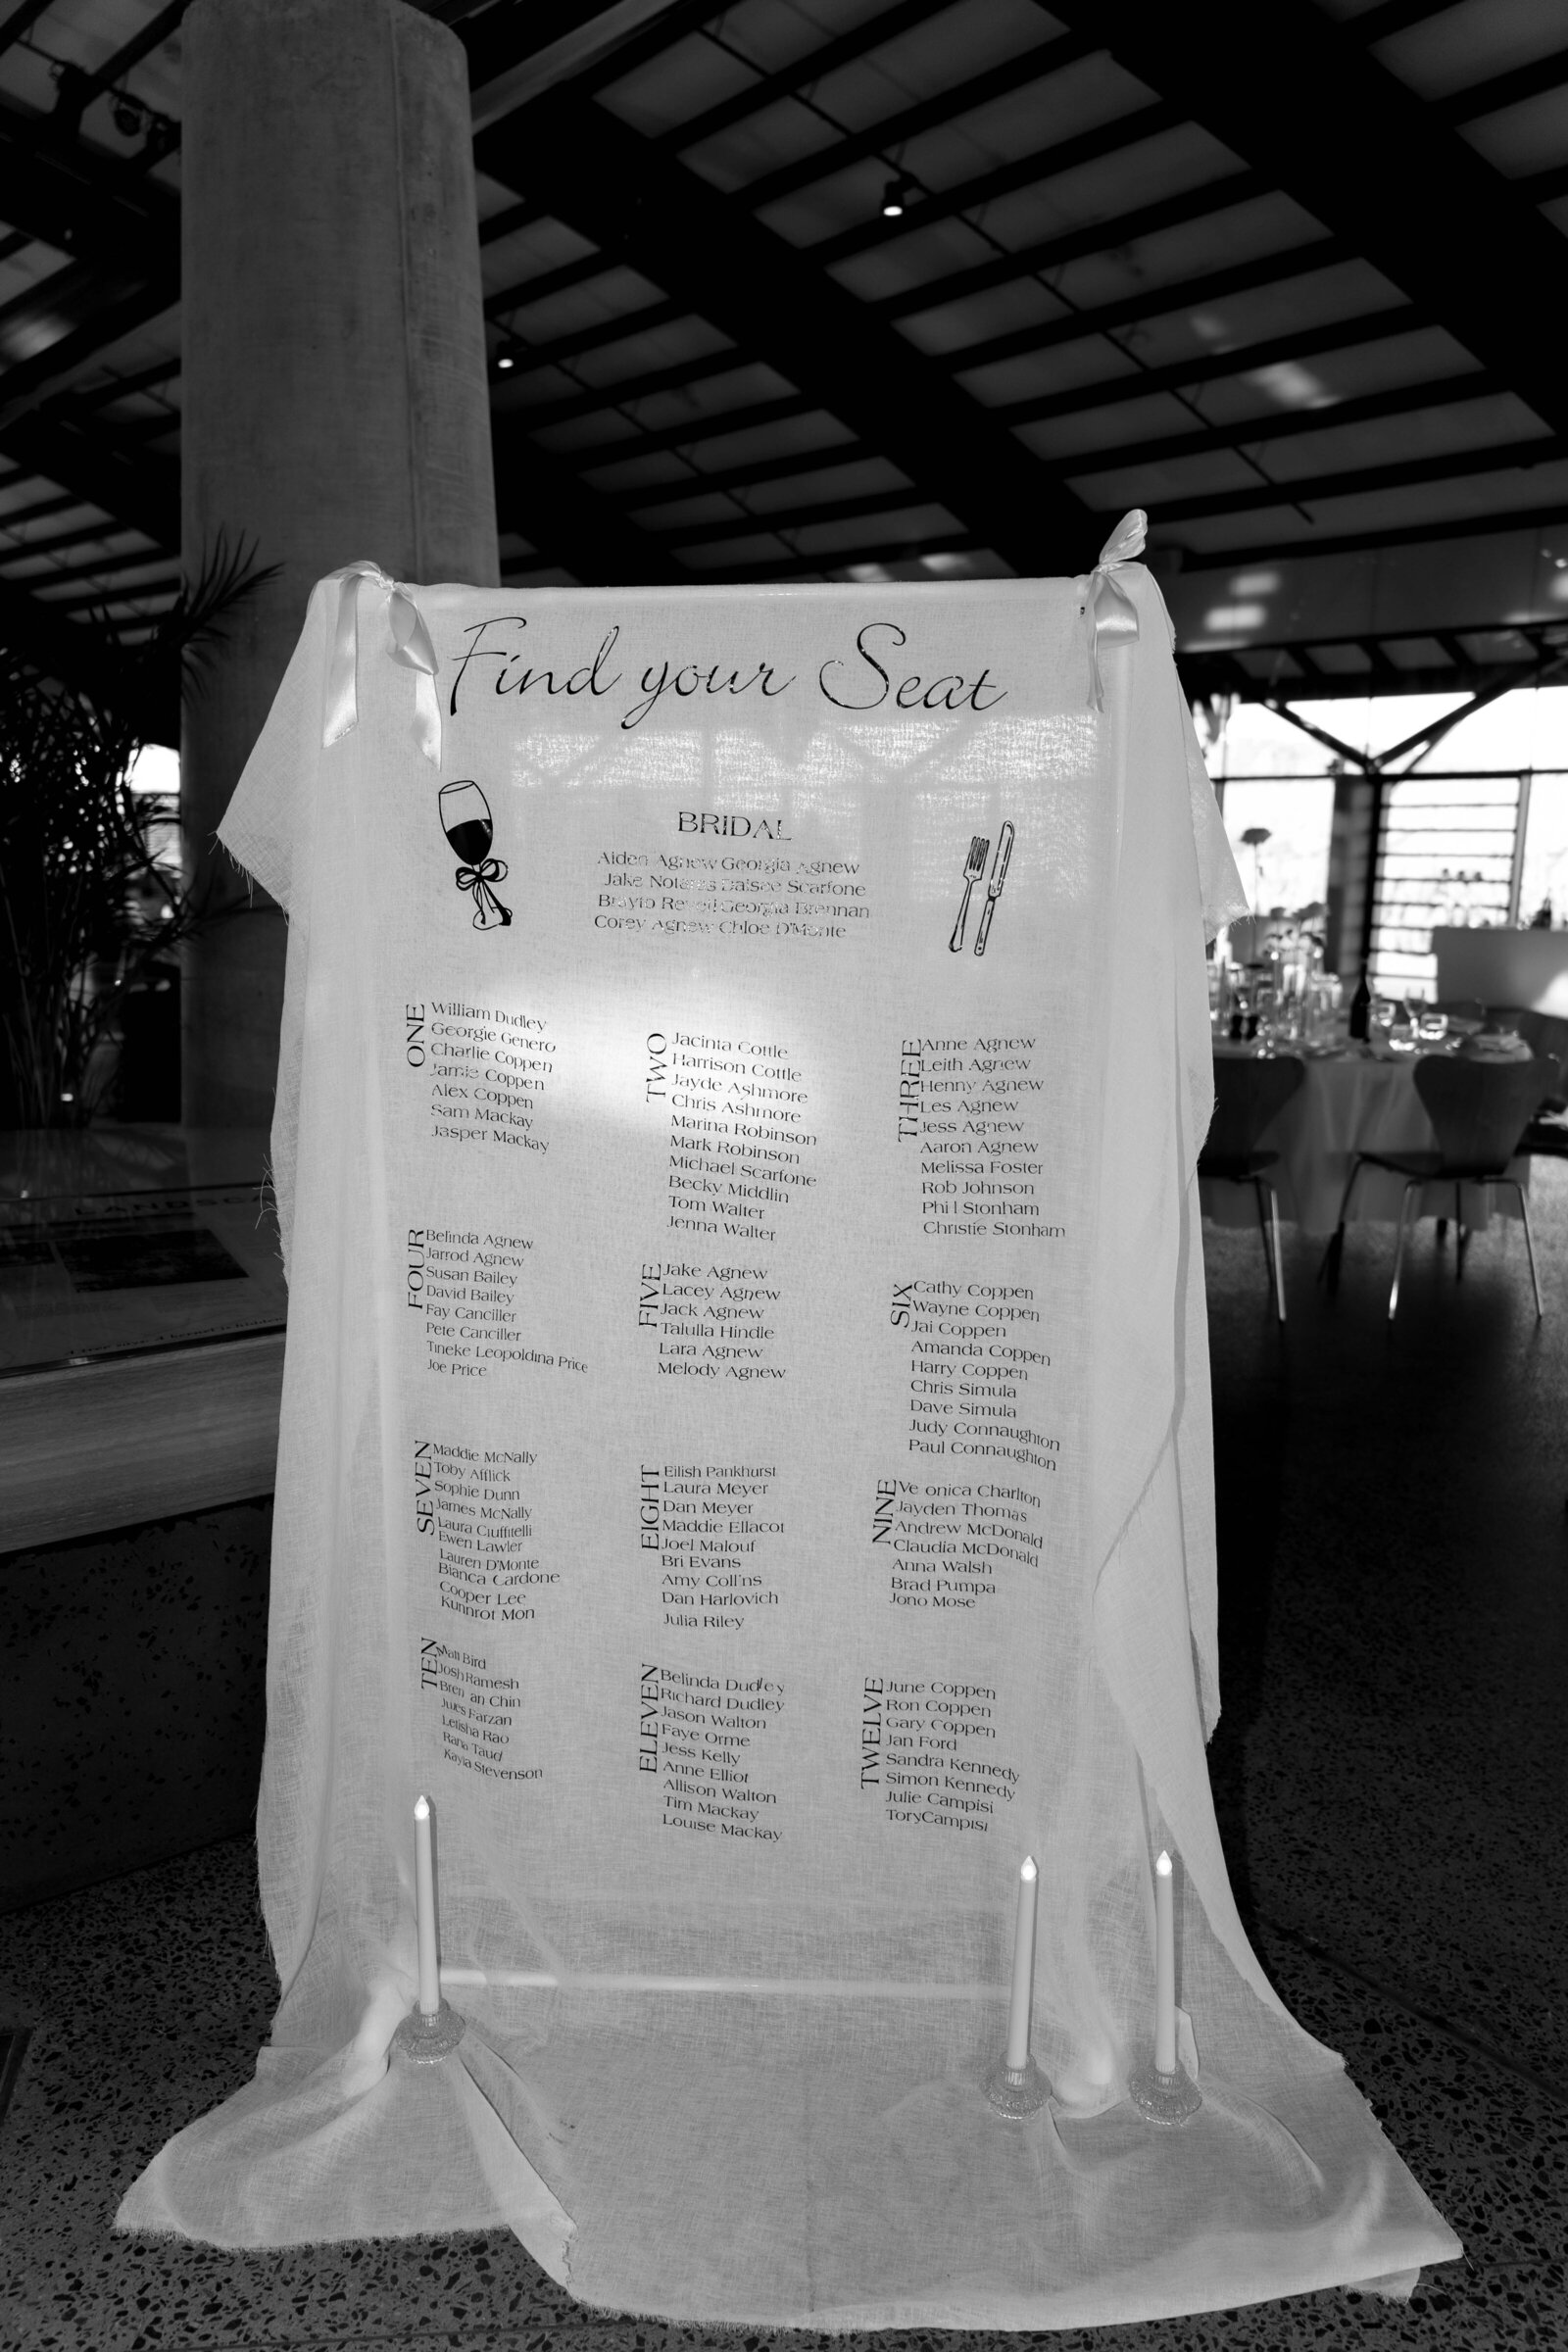 Find your Seat
BRIDAL
Aiden Agnew Georgia Agnew
Jake Daisee Scarfone
Georgia Brennan
Corey Agnew Chloe D'Monte
ONE
William Dudley
Georgie Genero
Charlie Coppen
Jamie Coppen
Alex Coppen
Sam Mackay
Jasper Mackay
TWO
Jacinta Cottle
Harrison Cottle
Jayde Ashmore
Chris Ashmore
Marina Robinson
Mark Robinson
Michael Scarfone
Becky Middlin
Tom Walter
Jenna Walter
THREE
Anne Agnew
Leith Agnew
Henny Agnew
Les Agnew
Jess Agnew
Aaron Agnew
Melissa Foster
Rob Johnson
Phil Stonham
Christie Stonham
FOUR
Belinda Agnew
Jarrod Agnew
Susan Bailey
David Bailey
Fay Canciller
Pete Canciller
Tineke Leopoldina Price
Joe Price
FIVE
Jake Agnew
Lacey Agnew
Jack Agnew
Talulla Hindle
Lara Agnew
Melody Agnew
SIX
Cathy Coppen
Wayne Coppen
Jai Coppen
Amanda Coppen
Harry Coppen
Chris Simula
Dave Simula
Judy Connaughton
Paul Connaughton
SEVEN
Maddie McNally
Toby Afflick
Sophie Dunn
James McNally
Laura Ciuffitelli
Ewen Lawler
Lauren D'Monte
Bianca Cardone
Cooper Lee
Kunnrot Mon
EIGHT
Eilish Pankhurst
Laura Meyer
Dan Meyer
Maddie Ellacot
Joel Malouf
Bri Evans
Amy Collins
Dan Harlovich
Julia Riley
NINE
Ve onica Charlton
Jayden Thomas
Andrew McDonald
Claudia McDonald
Anna Walsh
Brad Pumpa
Jono Mose
TEN
Matt Bird
Josh Ramesh
Bren an Chin
Farzan
Letisha Rao
Rana Taud
Kayla Stevenson
ELEVEN
Belinda Dudley
Richard Dudley
Jason Walton
Faye Orme
Jess Kelly
Anne Elliot
Allison Walton
Tim Mackay
Louise Mackay
TWELVE
June Coppen
Ron Coppen
Gary Coppen
Jan Ford
Sandra Kennedy
Simon Kennedy
Julie Campisi
ToryCampisi